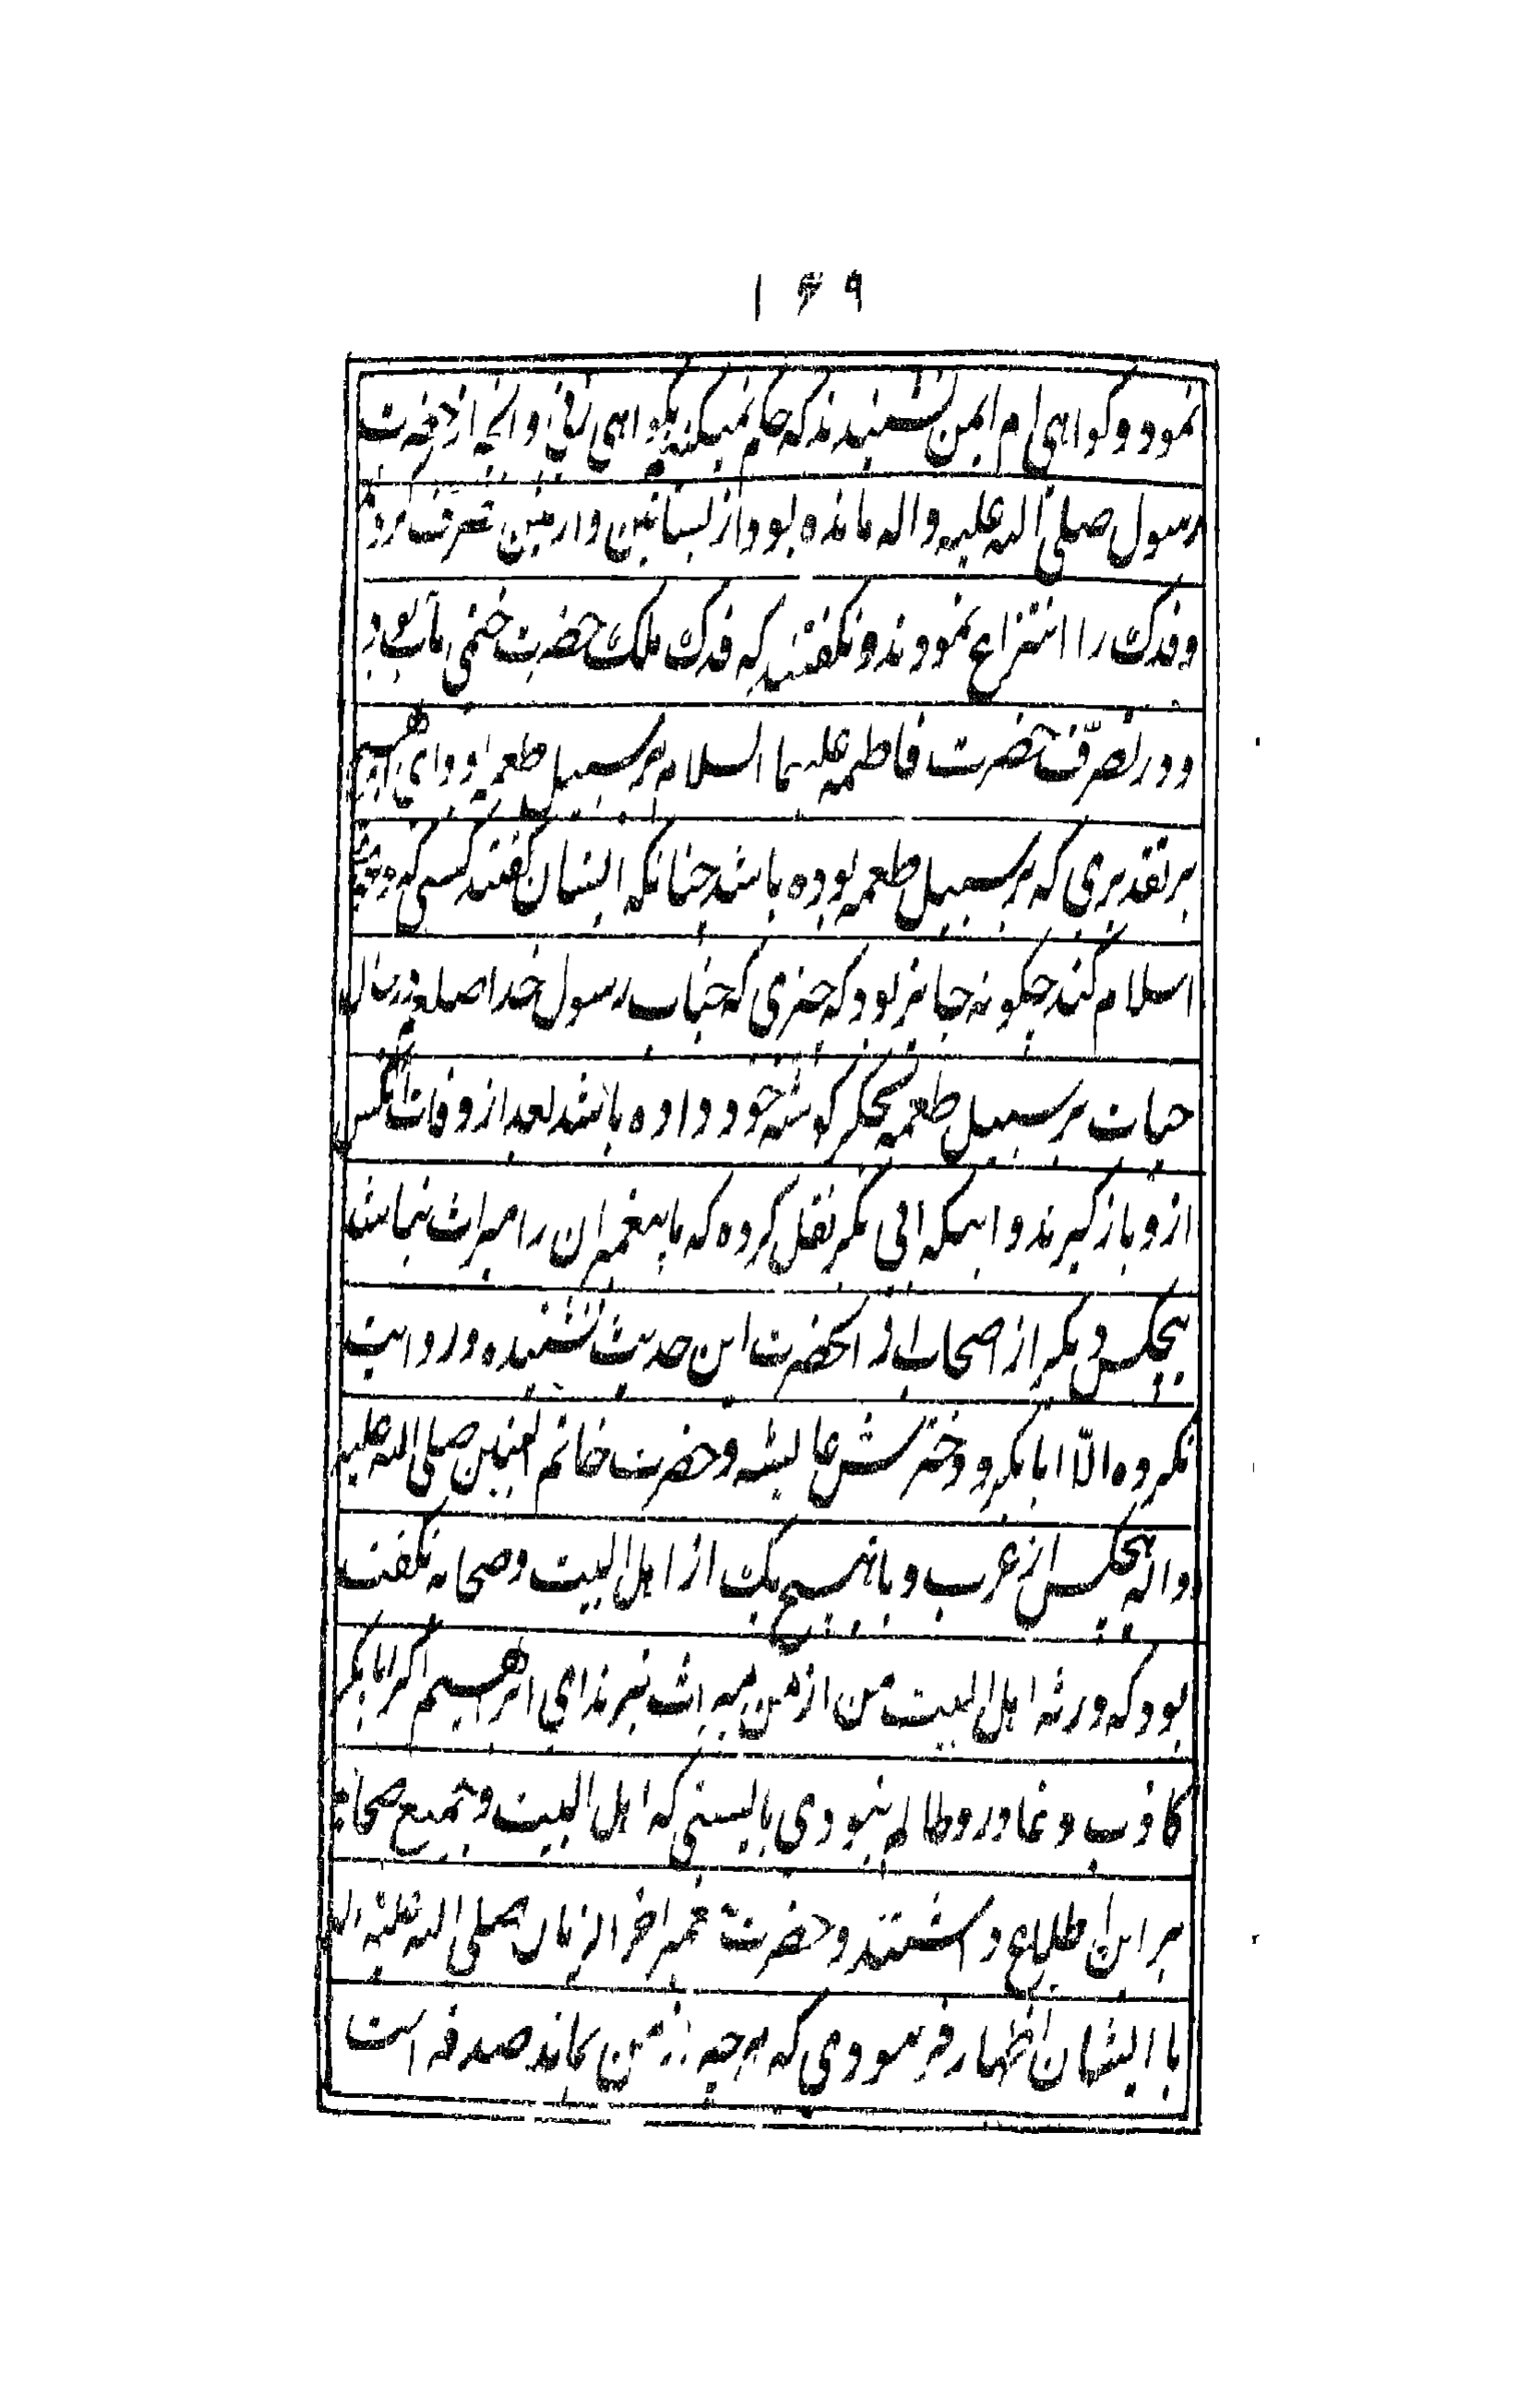 ۱۶۹
نمود و کواهی ام ایمن نشنیدند که حکم نمیکنم بکواهی زنی و انچه از حضرت
رسول صلی الله علیه واله مانده بود از بساتین وارضین تصرف کردند
و فدک را انتزاع نمودند و نکفتند که فدک ملک حضرت ختمی ماب بود
و در تصرف حضرت فاطمه علیها السلام بر سبیل طعمه بود ای ابرهیم
بر تقدیری که بر سبیل طعمه بوده باشد چنانکه ایشان کفتند کسی که دعوی
اسلام کند چکونه جایز بود که چیزی که جناب رسول خدا صلعم در حال
حیات بر سبیل طعمه بجکر کوشه خود داده باشد بعد از وفات انکس
از و باز کیرند و اینکه ابی بکر نقل کرده که پیغمبران را میراث نباشد
هیچکس دیکر از اصحاب از انحضرت این حدیث نشنیده و روایت
نکرده الّا ابابکر و دخترش عایشه و حضرت خاتم النبیین صلی الله علیه
واله بهیچکس از عرب و با هیچ یک از اهل البیت و صحابه نکفته
بود که ورثه اهل البیت من از من میراث نبرند ای ابرهیم اکر ابابکر
کاذب و غادر و ظالم نبودی بایستی که اهل البیت و جمیع صحابه
بر این اطلاع داشتند و حضرت پیغمبر اخر الزمان صلی الله علیه واله
با ایشان اظهار فرمودی که هر چه از من بماند صدقه است